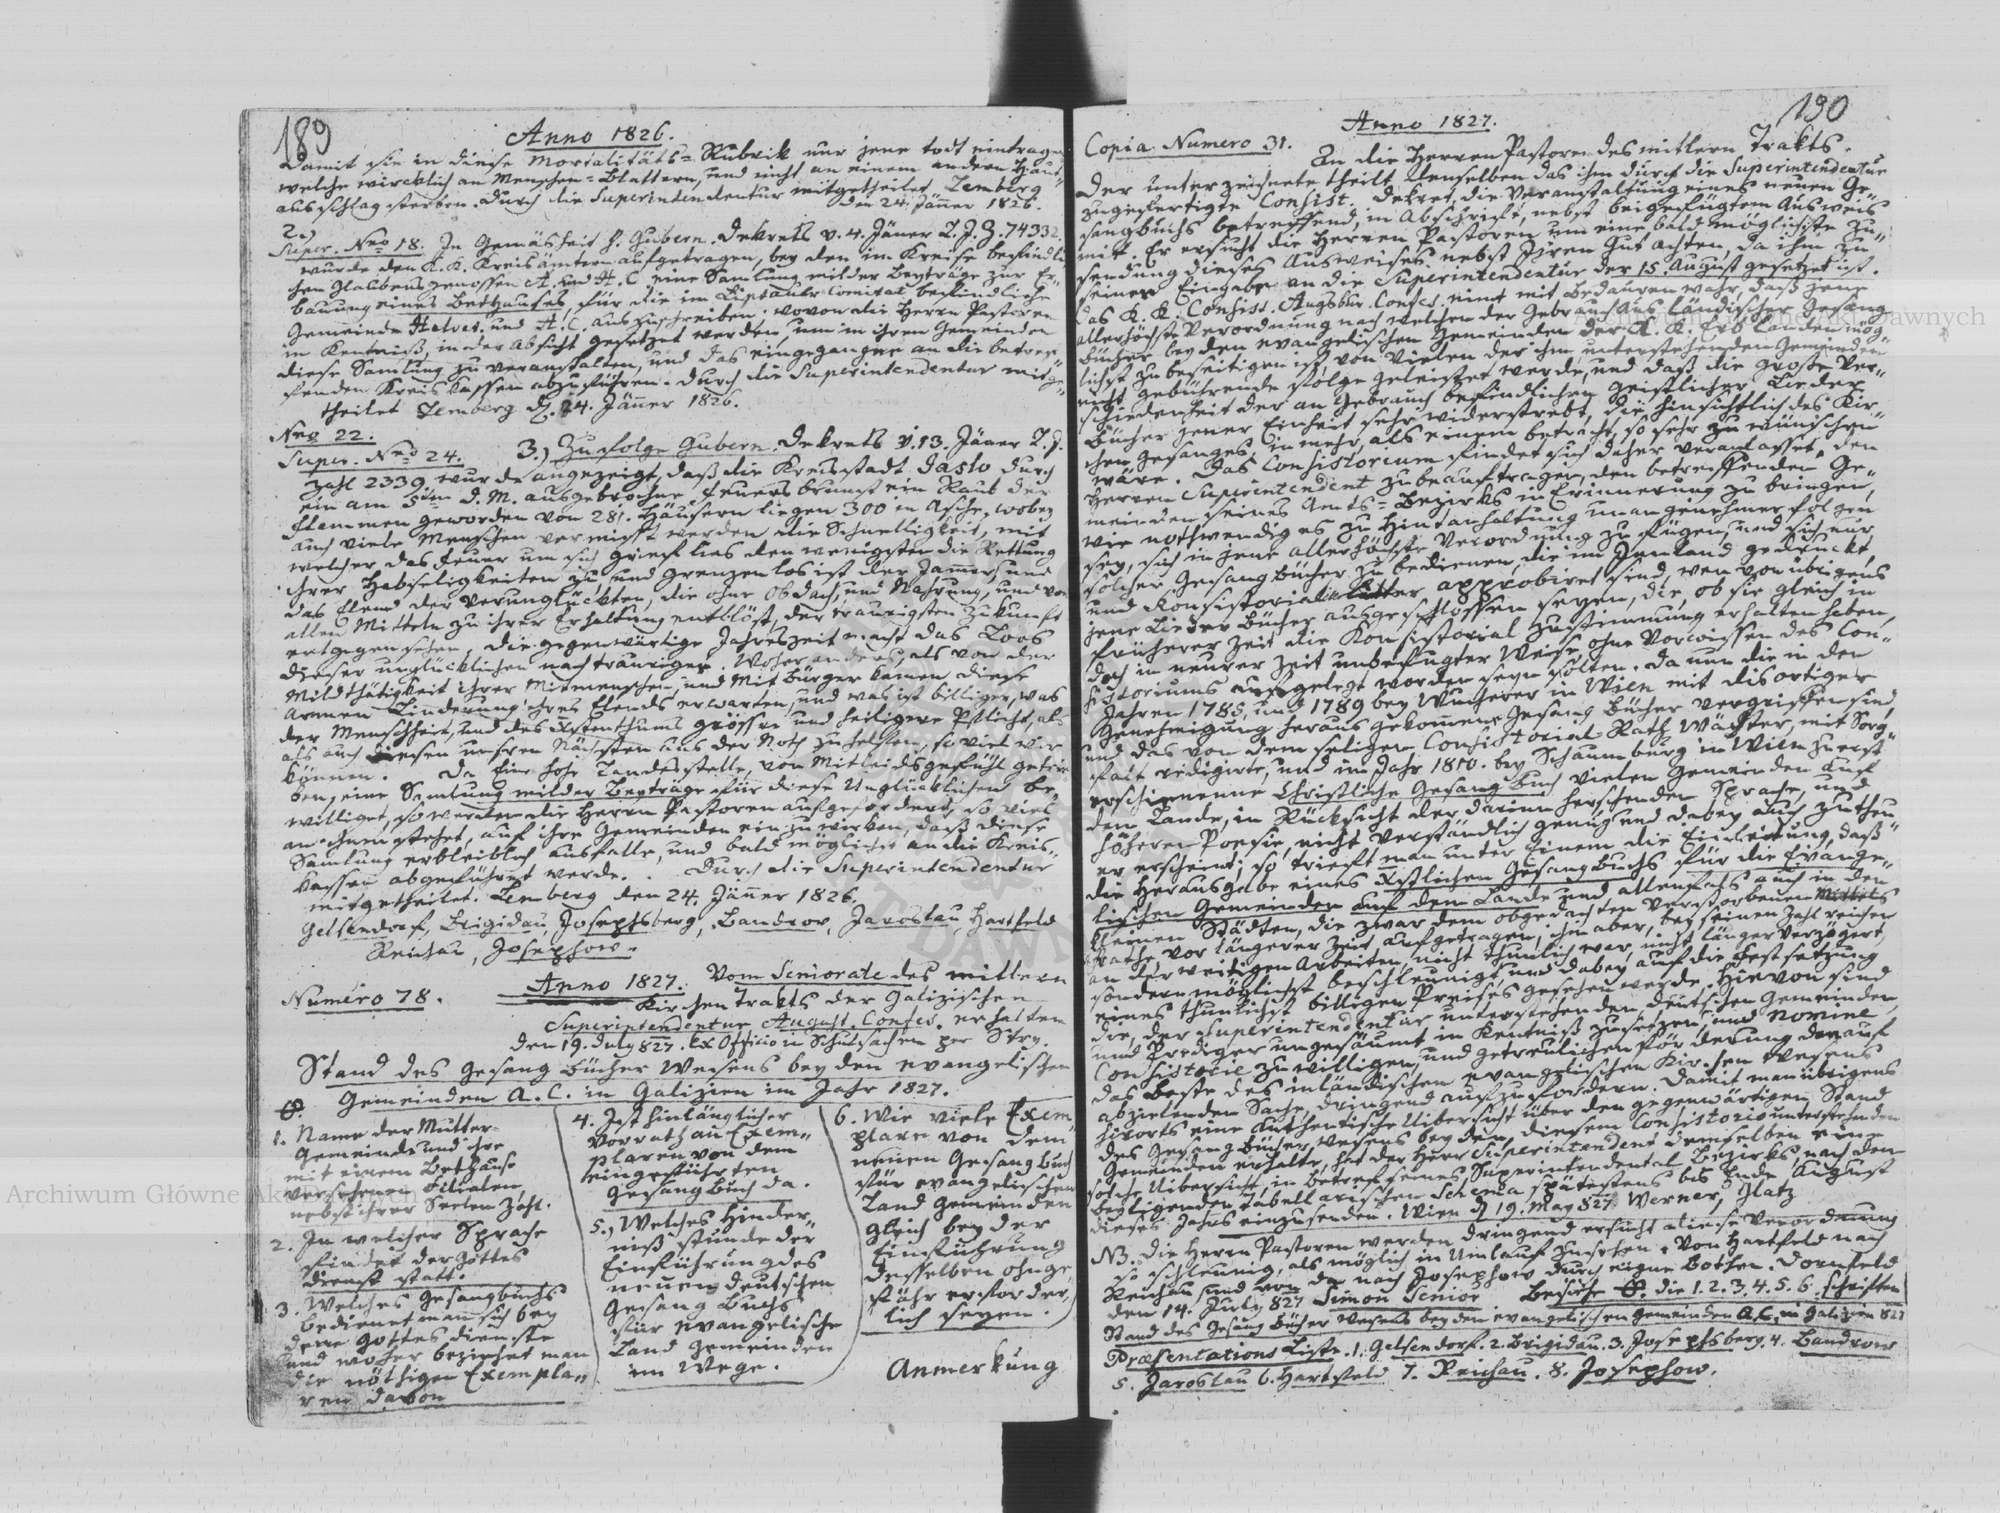 189
Anno 1826.
Damit sie in diese Mortalitäts-Rubrik nur jene todt eintragen
welche wircklich an Menschen-Blattern, und nicht an einem andern Haut-
ausschlag sterben. Durch die Superintendentur mitgetheilet, Lemberg
den 24. Jänner 1826.
2.)
Super. Nro 18. In Gemäsheit h. Gubern. Dekrets v. 4. Jäner l. J. Z. 74332
wurde den K. K. Kreisämtern aufgetragen, bey den im Kreise befindli
chen Glaubensgenossen A. und H. C. eine Samlung milder Beyträge zur Er-
bauung eines Bethauses, für die im Liptauer Comitat befindliche
Gemeinde und A. C. auszuschreiben. wovon die Herrn Pastoren
in Kentniß, in der Absicht gesetzet werden, um in ihren Gemeinden
diese Samlung zu veranstalten, und das eingegangne an die betref-
fenden Kreis Kassen abzuführen. Durch die Superintendentur mitge-
theilet Lemberg d. 24. Jänner 1826.
Nro 22.
Super. Nro 24. 3.) Zufolge Gubern. Dekrets v. 13. Jäner l. J.
Zahl 2339 wurde angezeigt, daß die Kreisstadt Jaslo durch
ein am 5ten d. M. ausgebrochne Feuersbrunst ein Raub der
Flammen geworden von 281. Häusern liegen 300 in Asche, wobey
auch viele Menschen vermißt werden die Schnelligkeit, mit
welcher das Feuer um sich grief lies den wenigsten die Rettung
ihrer Habseligkeiten zu, und grenzenlos ist der Jammer und
das Elend der Verunglückten, die ohne Obdach, und Nahrung, und von
allen Mitteln zu ihrer Erhaltung entblöst, der traurigsten Zukunft
entgegen sehen, die gegenwärtige Jahreszeit macht das Loos
dieser unglücklichen noch trauriger. Woher anders, als von der
Mildthätigkeit ihrer Mitmenschen, und Mitbürger können diese
Armen Linderung ihres Elends erwarten, und was ist billiger, was
der Menschheit, und des Xstenthums grössre und heiligere Pflicht, als
als auch diesen unsren Nächsten aus der Noth zu helfen, so viel wir
können. Da Eine hohe Landesstelle, von Mitleidsgefühl getrie
ben, eine Samlung milder Beyträge für diese Unglücklichen be-
williget, so werden die Herrn Pastoren aufgefordert, so viel
an ihnen stehet, auf ihre Gemeinden einzuwirken, daß diese
Samlung erklecklich ausfalle, und bald möglichst an die Kreis-
kassen abgeführet werde. Durch die Superintendentur
mitgetheilet. Lemberg den 24. Jänner 1826.
Gelsendorf, Brigidau, Josephsberg, Bandrow, Jaroslau, Hartfeld
Reichau, Josephow.
Numero 78. Anno 1827. Vom Seniorate des mittlern
Kirchen Trakts der Galizischen
Superintendentur August. Confes. erhalten
den 19. July 827. Ex Officio in Schulsachen per Stry.
Stand des Gesang Bücher Wesens bey den evangelischen
Gemeinden A. C. in Galizien im Jahr 1827.
1. Name der Mutter-
Gemeinde und ihre
mit einem Bethause
versehenen Filialen
nebst ihrer Seelen Zahl.
2. In welcher Sprache
findet der Gottes
dienst statt.
3. Welches Gesangbuchs
bedienet man sich bey
dem Gottes dienste
und woher beziehet man
die nöthigen Exempla-
ren davon
4. Ist hinlänglicher
Vorrath an Exem-
plaren von dem
eingeführten
Gesang Buch da.
5. Welches Hinder-
niß stünde der
Einführung des
neuen deutschen
Gesang Buchs
für evangelische
Land Gemeinden
im Wege.
6. Wie viele Exem
plare von dem
neuen Gesang Buch
für evangelischen
Land Gemeinden
gleich bey der
Einführung
desselben ohnge
fähr erforder
lich seyen.
Anmerkung
190
Anno 1827.
Copia Numero 31. An die Herren Pastoren des mittlern Trakts.
Der unterzeichnete theilt denselben das ihm durch die Superintendentur
zugefertigte Consist. Dekret, die Veranstaltung eines neuen Ge-
sangbuchs betreffend, in Abschrift, nebst beigefügtem Ausweis
mit. Er ersucht die Herren Pastoren um eine bald möglichste Zu-
sendung dieses Ausweises nebst Ihren Gutachten, da ihm zu
seiner Eingabe an die Superintendentur der 15. August gesetzet ist.
Das K. K. Consist. Augsbur. Confes. nimt mit Bedauren wahr, daß jene
allerhöchste Verordnung nach welcher der Gebrauch ausländischer Gesang
bücher bey den evangelischen Gemeinden der K. K. Erb Landen mög
lichst zu beseitigen ist, von Vielen der ihm unterstehenden Gemeinden
nicht gebührende Folge geleistet werde, und daß die große Ver-
schiedenheit der an Gebrauch befindlichen geistlicher Lieder
bücher jener Einheit sehr widerstrebt, die hinsichtlich des Kir-
chen Gesanges, in mehr, als einem betracht, so sehr zu wünschen
wäre. Das Consistorium findet sich daher veranlasset, den
Herren Superintendent zu beauftragen, den betreffenden Ge-
meinden seines Amts-Bezirks in Erinnerung zu bringen,
wie nothwendig es zu Hintanhaltung unangenehmer Folgen
sey, sich in jene allerhöchste Verordnung zu fügen, und sich nur
solcher Gesangbücher zu bedienen, die im Inland gedruckt,
und Konsistorialiter approbiret sind, wovon übrigens
jene Lieder Bücher ausgeschlossen seyen, die, ob sie gleich in
früherer Zeit die Konsistorial Zustimmung erhalten haben,
doch in neurer Zeit unbefugter Weise, ohne Vorwissen des Con-
sistoriums aufgelegt worden seyn solten. Da nun die in den
Jahren 1785, und 1789 bey Wucherer in Wien mit disortiger
Genehmigung heraus gekommene Gesang Bücher vergriffen sind,
und das von dem seligen Consistorial Rath Wächter, mit Sorg-
falt redigirte, und im Jahr 1810. bey Schaumburg in Wien zuerst
erschienene Christliche Gesangbuch vielen Gemeinden auf
dem Lande, in Rücksicht der darinn herschenden Sprache, und
höhern Poesie, nicht verständlich genug und dabey auch zu theu
er erscheint; so trieft man unter Einem die Einleitung, daß
die Herausgabe eines Xstlichen Gesangbuchs für die Evange-
lischen Gemeinden auf dem Lande und allenfals auch in den
kleinern Städten, die zwar dem obgedachten Verstorbenen
rathe vor längerer Zeit aufgetragen, ihm aber, bey seinen Zahlreichen
anderweitigen Arbeiten, nicht thunlich war, nicht länger verzögert,
sondern möglichst beschleunigt, und dabey auf die Festsetzung
eines thunlichst billigen Preises gesehen werde. Hievon sind
die, der Superintendentur unterstehenden, deutschen Gemeinden,
und Prediger ungesäumt in Kentniß zu setzen, und Nomine
Consistorii zu willigen, und getreulichen Förderung der auf
das Beste des inländischen evangelischen Kirchen Wesens
abzielenden Sache, dringend aufzufordern. Damit man übrigens
hierorts eine authentische Uibersicht über den gegenwärtigen Stand
des Gesang Bücher Wesens bey den, diesem Consistorio unterstehenden
Gemeinden erhalte, hat der Herr Superintendent demselben eine
solche Uibersicht in betref seines Superintendental Bezirks, nach dem
beyligenden Tabellarischen Schema spätestens bis Ende August
dieses Jahrs einzusenden. Wien d. 19. May 827. Werner, Glatz
NB. Die Herrn Pastoren werden dringend ersucht diese Verordnung
so schleunig, als möglich in Umlauf zu setzen. Von Hartfeld nach
Reichau und von da nach Josephow durch eigne Bothen. Dornfeld
den 14. July 827 Simon Senior Besiehe die 1. 2. 3. 4. 5. 6. Schriften
Stand des Gesang Bücher Wesens bey den evangelischen Gemeinden A. C. in Galizien 827
Præsentations Liste. 1. Gelsendorf. 2. Brigidau. 3. Josephsberg. 4. Bandrow
5. Jaroslau 6. Hartfeld 7. Reichau. 8. Josephow.
Archiwum Główne Akt Dawnych
Archiwum Główne Akt Dawnych